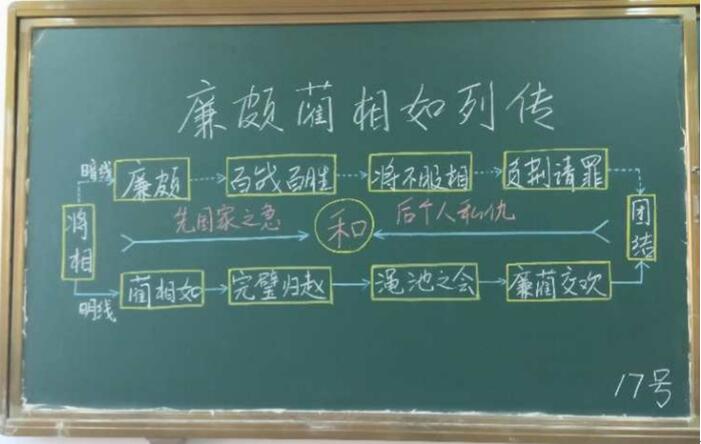 廉颇蔺相如列传
暗线 廉颇 百战百胜 将不服相 负荆请罪
将相 先国家之急 和 后个人私仇 团结
明线 蔺相如 完璧归赵 渑池之会 廉蔺交欢
17号